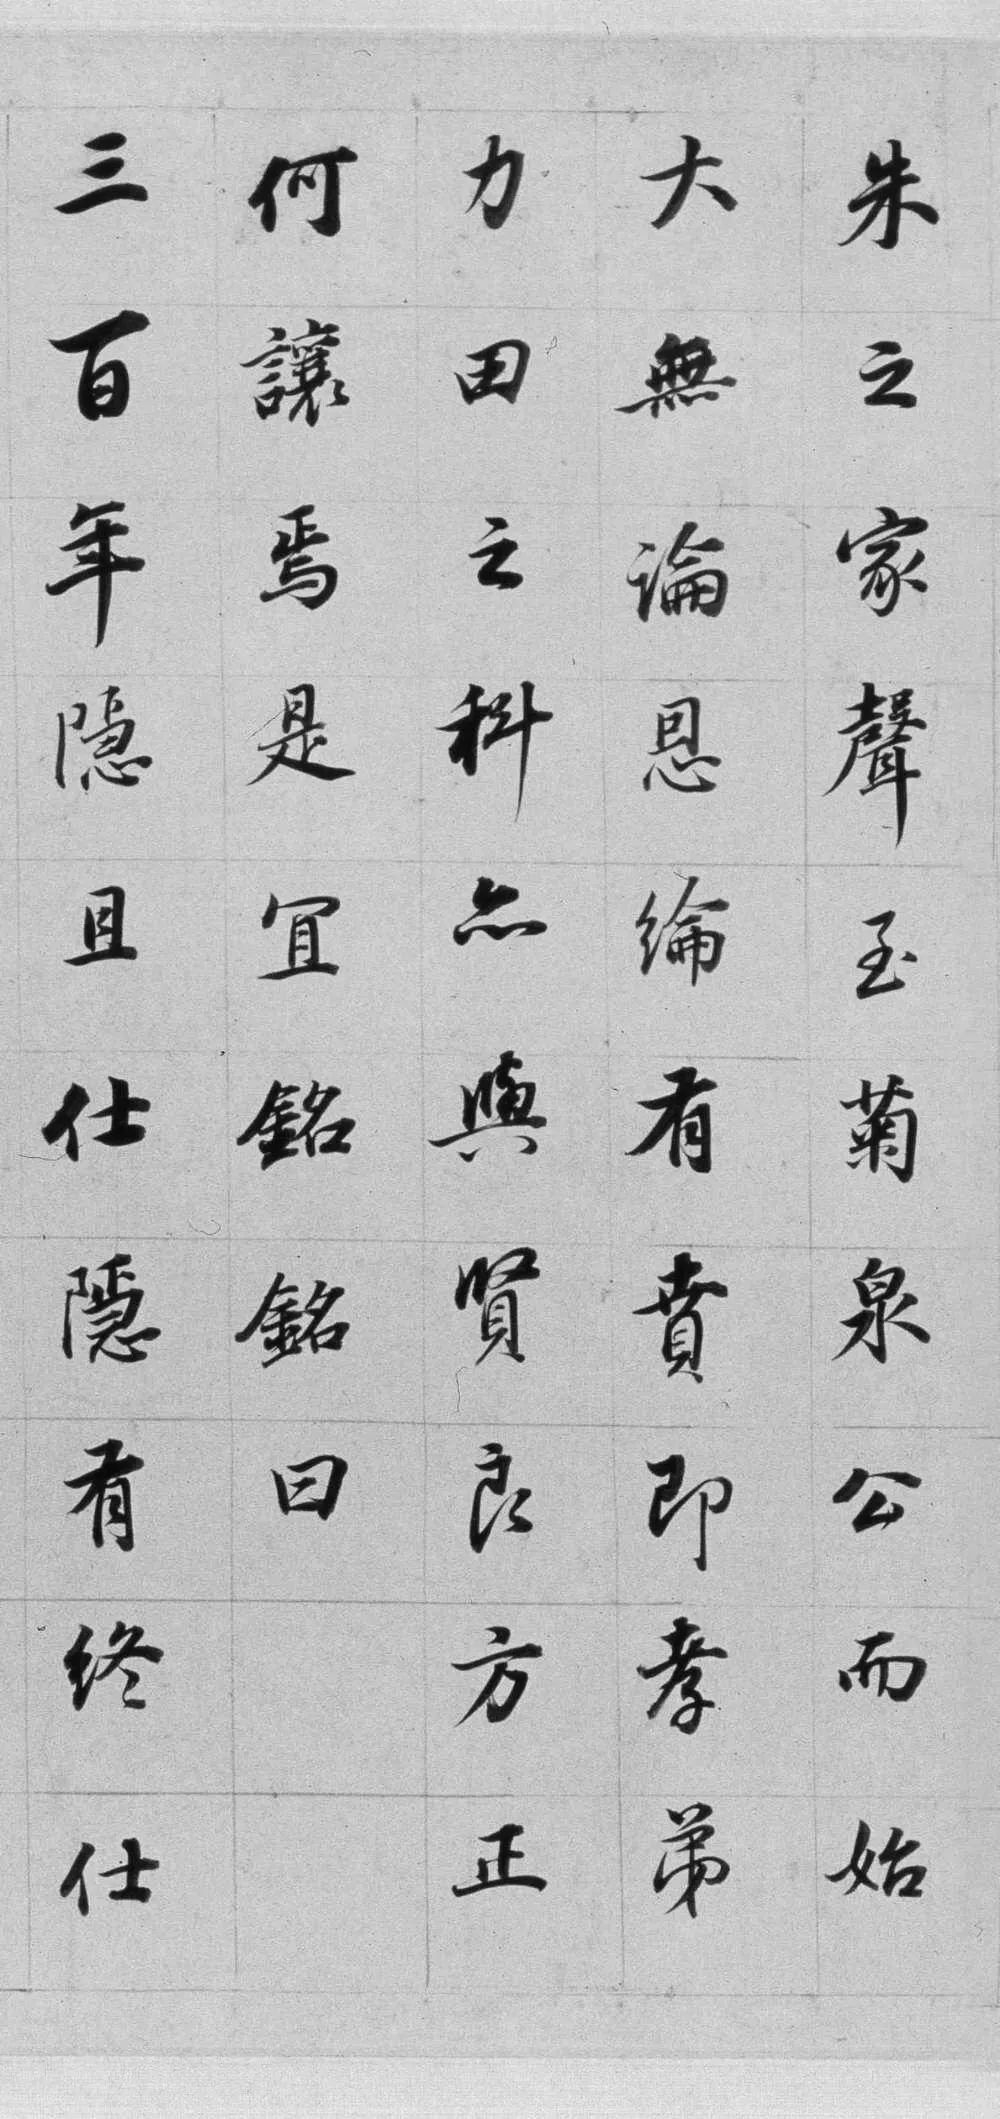 朱之家聲至菊泉公而始
大無論恩綸有賁即孝弟
力田之科亦與賢良方正
何讓焉是宜銘銘曰
三百年隱且仕隱有終仕